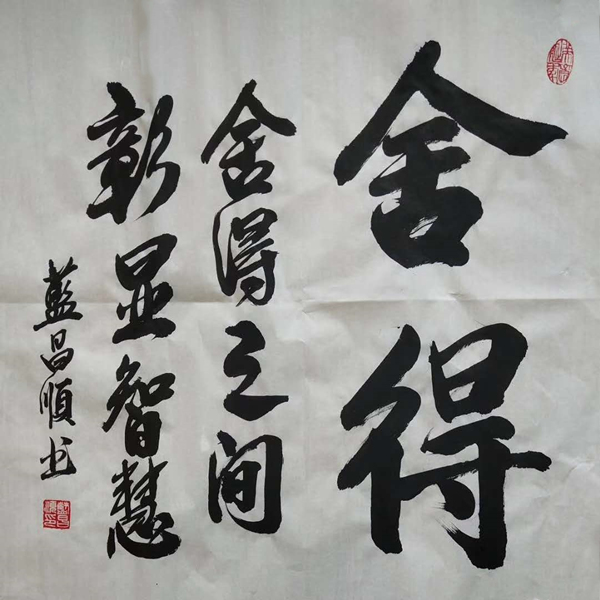 舍得
舍得之间
彰显智慧
藍昌順书